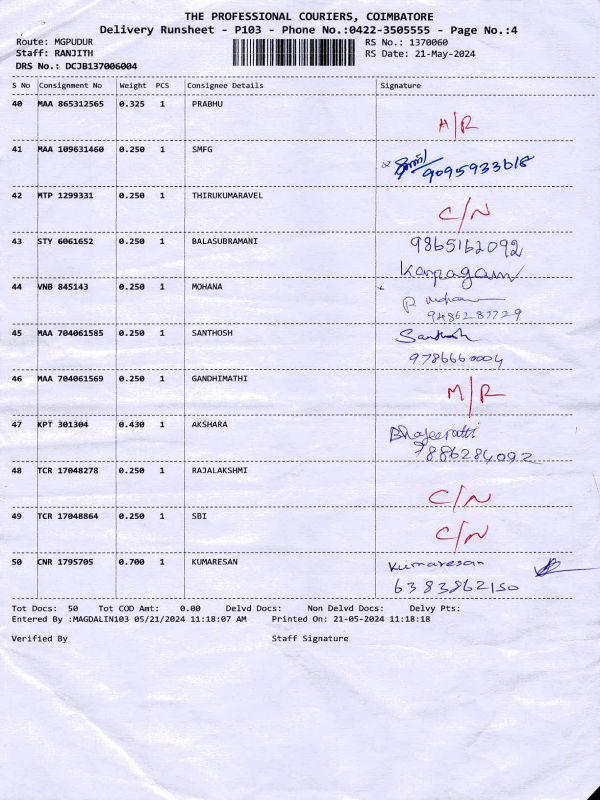 THE PROFESSIONAL COURIERS, COIMBATORE
Delivery Runsheet - P103 - Phone No.:0422-3505555 - Page No.:4
Route: MGPUDUR RS No.: 1370060
Staff: RANJITH RS Date: 21-May-2024
DRS No.: DCJB137006004
S No Consignment No Weight PCS Consignee Details Signature
40 MAA 865312565 0.325 1 PRABHU
A/R
41 MAA 109631460 0.250 1 SMFG
9095933618
42 MTP 1299331 0.250 1 THIRUKUMARAVEL
C/N
43 STY 6061652 0.250 1 BALASUBRAMANI 9865162092
Karpagam
44 VNB 845143 0.250 1 MOHANA
P. Mohana
9486287729
45 MAA 704061585 0.250 1 SANTHOSH Santhosh
9786660004
46 MAA 704061569 0.250 1 GANDHIMATHI
M/R
47 KPT 301304 0.430 1 AKSHARA
Bhageerathi
7886284092
48 TCR 17048278 0.250 1 RAJALAKSHMI
C/N
49 TCR 17048864 0.250 1 SBI
C/N
50 CNR 1795705 0.700 1 KUMARESAN Kumaresan
6383862150
Tot Docs: 50 Tot COD Amt: 0.00 Delvd Docs: Non Delvd Docs: Delvy Pts:
Entered By :MAGDALIN103 05/21/2024 11:18:07 AM Printed On: 21-05-2024 11:18:18
Verified By Staff Signature